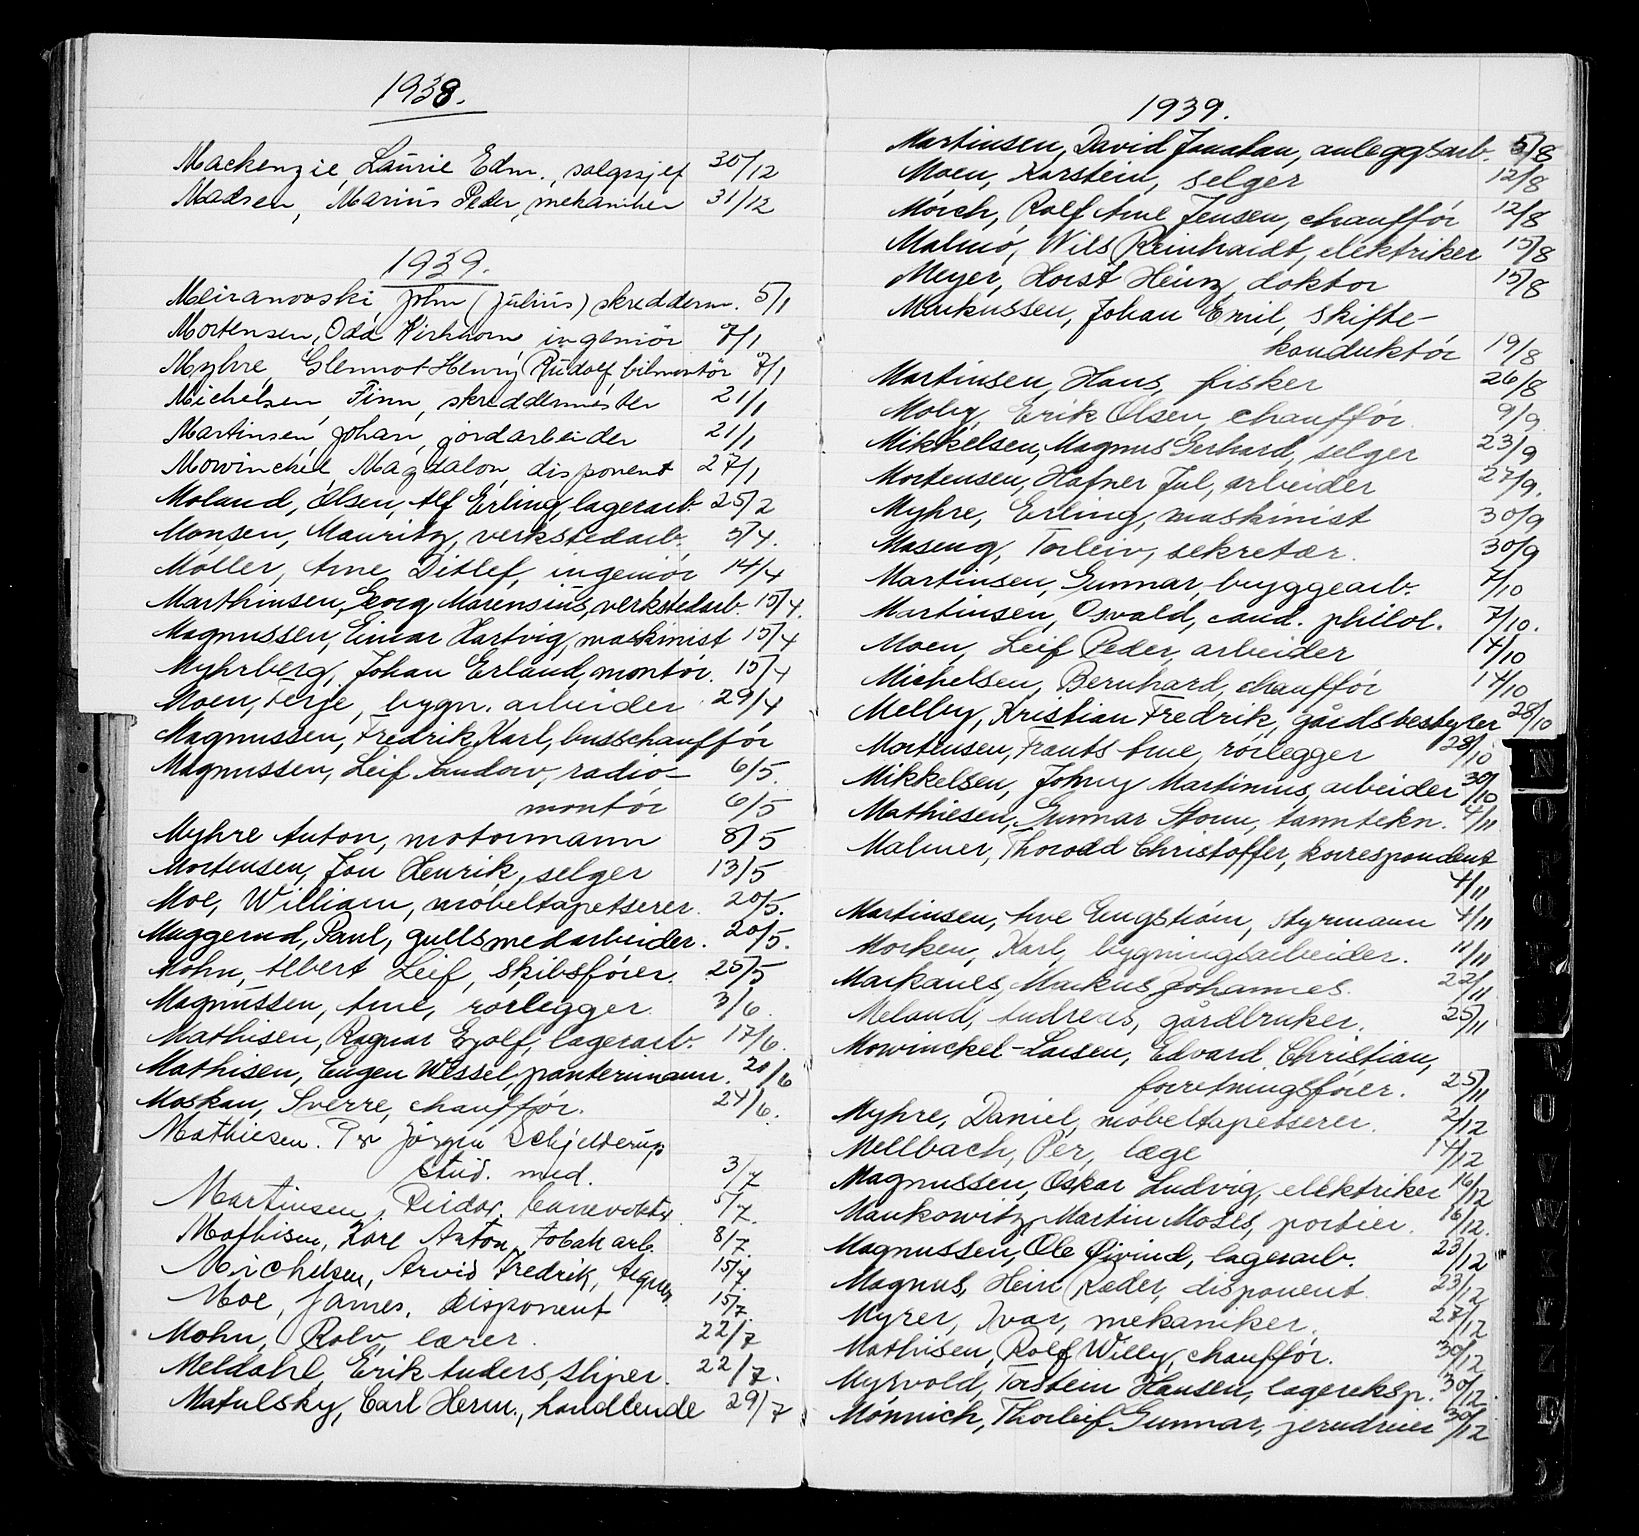 1938.
Mackenzie, Laurie Edm., salgssjef 30/12
Madsen, Marius Peder, mekaniker 31/12
1939.
Meiranovski John (Julius) skredderm. 5/1
Mortensen, Odd Kirhorn ingeniör 7/1
Myhre Glennot Henry Rudolf, bilmontör 7/1
Michelsen Finn, skreddermester 21/1
Martinsen Johan, jordarbeider 21/1
Mowinckel Magdalon, disponent 27/1
Moland, Olsen, Alf Erling, lagerarb. 25/2
Monsen, Mauritz, verkstedarb. 5/4.
Möller, Arne Ditlef, ingeniör 14/4
Marthinsen, Georg Marensius, verkstedarb. 15/4.
Magnussen, Einar Hartvig, maskinist 15/4
Myhrberg, Johan Erland, montör. 15/4
Moen, Terje, bygn. arbeider 29/4
Magnussen, Fredrik Karl, busschaufför
Magnussen, Leif Sandow, radio- 6/5.
montör 6/5
Myhre Anton, motormann 8/5
Mortensen, Jon Henrik, selger 13/5
Moe, William, möbeltapetserer 20/5.
Muggerud, Paul, gullsmedarbeider. 20/5.
Mohn, Albert Leif, skibsförer. 25/5
Magnussen, Arne, rörlegger. 3/6.
Mathisen, Ragnar Ejolf, lagerarb. 17/6.
Mathisen, Eugen Wessel, pantermann. 20/6
Moskau, Sverre, chaufför. 24/6.
Mathiesen. Per Jörgen Schjelderup
stud. med. 3/7
Martinsen, Reidar, 5/7.
Mathisen, Kåre Anton, Tobakarb. 8/7.
Michelsen, Arvid Fredrik, 15/7.
Moe, James, disponent 15/7.
Mohn, Rolv, lærer. 22/7
Meldahl, Erik Anders, sliper. 22/7.
Matulsky, Carl Herm., handlende 29/7
1939.
Martinsen, David Jonatan, anleggsarb. 5/8
Moen, Karstein, selger 12/8
Mörch, Rolf Arne Jensen, chauffór 12/8
Malmö, Nils Reinhardt, elektriker 15/8
Meyer, Horst Heinz, doktor 15/8
Markussen, Johan Emil, skifte-
konduktör 19/8
Martinsen, Hans, fisker 26/8
Moby, Erik Olsen, chaufför. 9/9.
Mikkelsen, Magnus Gerhard, selger 23/9
Mortensen, Hafner Jul, arbeider 27/9.
Myhre, Erling, maskinist 30/9
Maseng, Torleiv, sekretær. 30/9
Martinsen, Gunnar, bryggearb. 7/10
Martinsen, Osvald, cand. philol. 7/10.
Moen, Leif Peder, arbeider 14/10
Michelsen, Bernhard, chaufför 14/10
Melby, Kristian Fredrik, gårdsbestyrer 28/10
Mortensen, Frants Arne, rörlegger 28/10
Mikkelsen, Johny Martinius, arbeider 30/10
Mathiesen, Gunnar Storm, tanntekn. 4/11
Malmer, Thorodd Christoffer, korrespondent
4/11
Martinsen, Arne Engström, styrmann 4/11
Morken, Karl, bygningsarbeider. 11/11
Markanes, Markus Johannes. 22/11
Meland, Andreas, gårdbruker. 25/11
Mowinckel-Larsen, Edvard Christian,
forretningsförer. 25/11
Myhre, Daniel, möbeltapetserer. 2/12
Mellbach, Per, læge 14/12
Magnussen, Oskar Ludvig, elektriker 16/12
Mankowitz, Martin Moses, portier. 16/12.
Magnussen, Ole Øivind, lagerarb. 23/12
Magnus, Hein Ræder, disponent 23/12
Myrer, Ivar, mekaniker. 27/12
Mathisen, Rolf Willy, chaufför. 30/12
Myrvold, Torstein Hansen, lagereksp. 30/12.
Mönnich, Thorleif Gunnar, jerndreier 30/12
N
O
P
Q
R
S
T
U
V
W
X
Y
Z
Æ